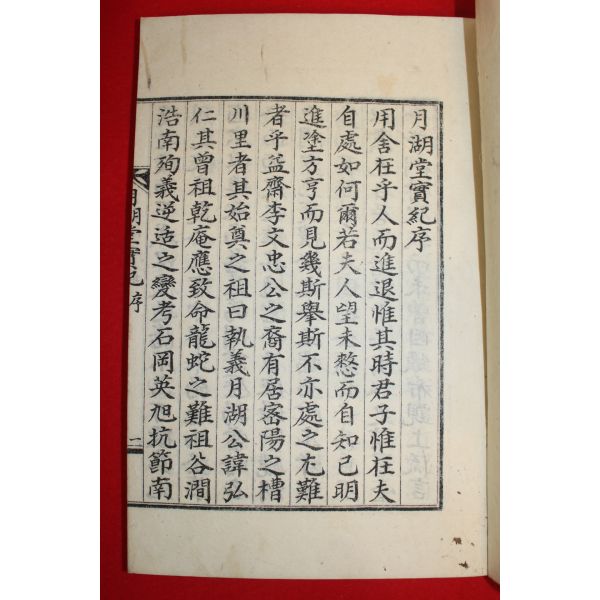 月湖堂實紀序
用舍在乎人而進退惟其時君子惟在夫
自處如何爾若夫人望未憗而自知已明
進塗方亨而見幾斯擧斯不亦處之尤難
者乎益齋李文忠公之裔有居密陽之槽
川里者其始奠之祖曰執義月湖公諱弘
仁其曾祖乾庵應致命龍蛇之難祖谷澗
浩南殉義逆适之變考石岡英旭抗節南
月湖堂實紀序
一